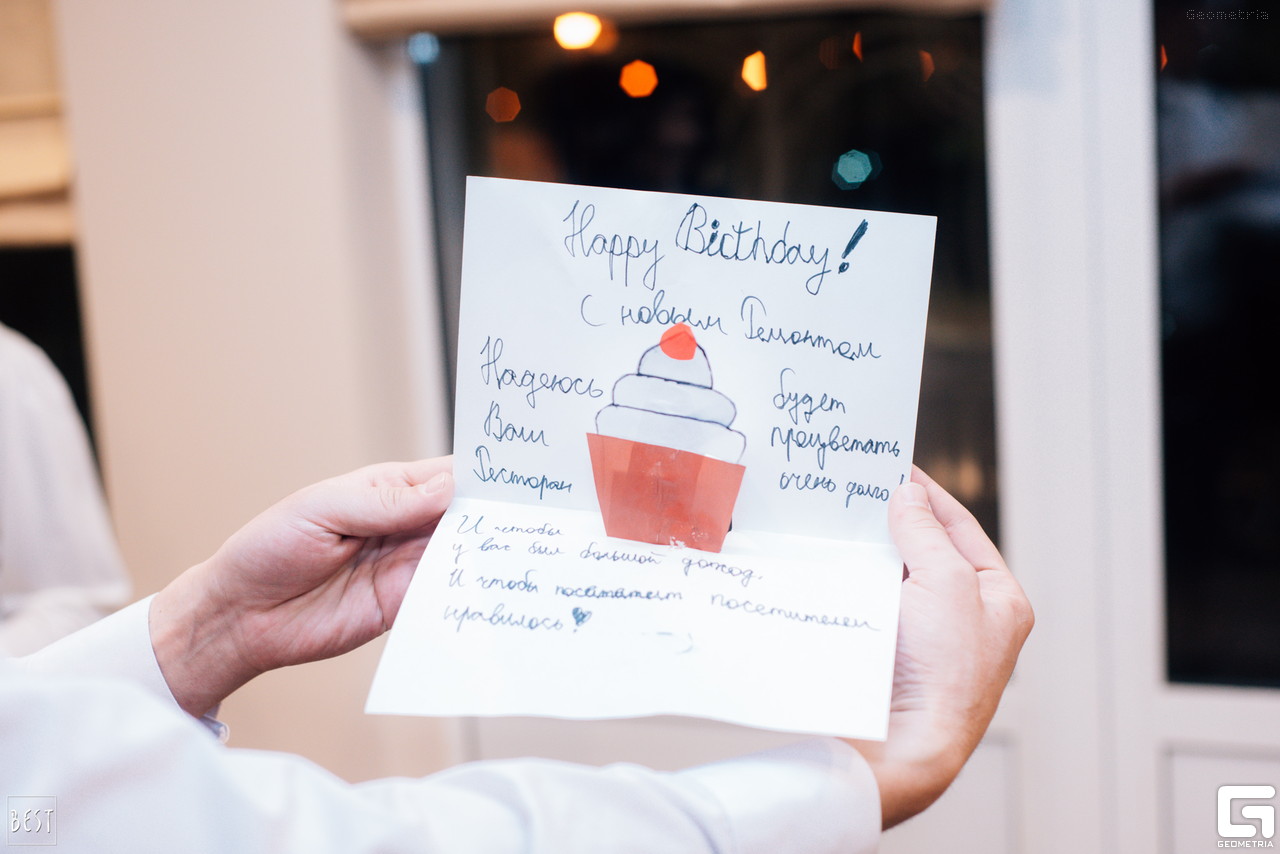 Geometria
Happy Birthday!
С новым Ремонтом
Надеюсь
Ваш
Ресторан
будет
процветать
очень долго!
И чтобы
у вас был большой доход.
И чтобы посетителем
нравилось!
BEST
G
GEOMETRIA